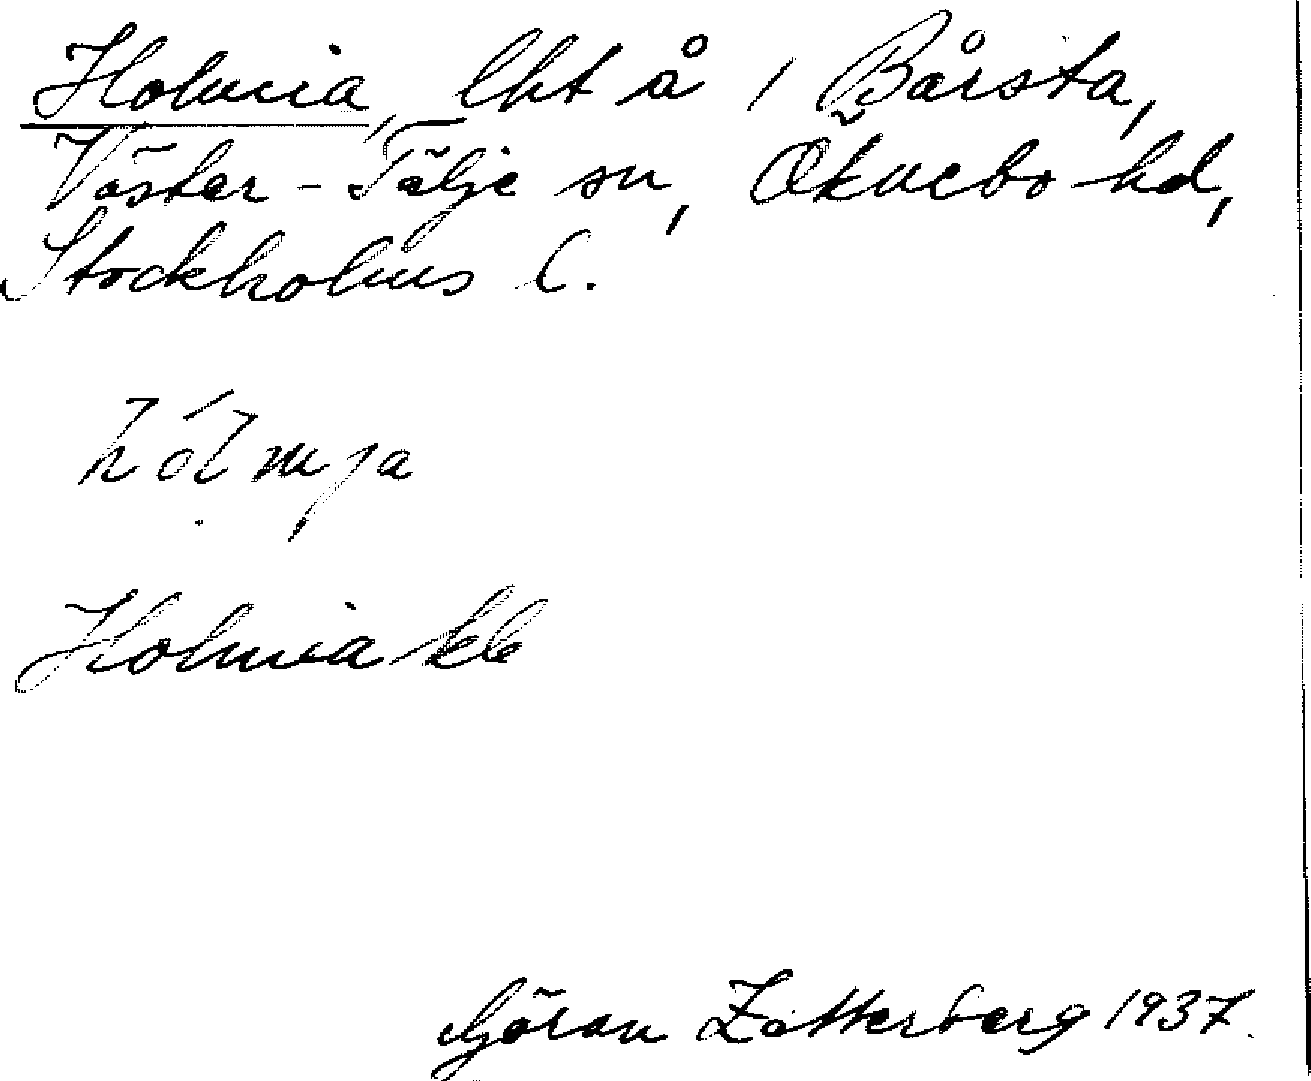 Holmia, lht å 1 Bårsta,
Väster-Tälje sn, Öknebo hd,
Stockholms l.
hól mja
Holmia kk
Göran Zetterberg 1937.